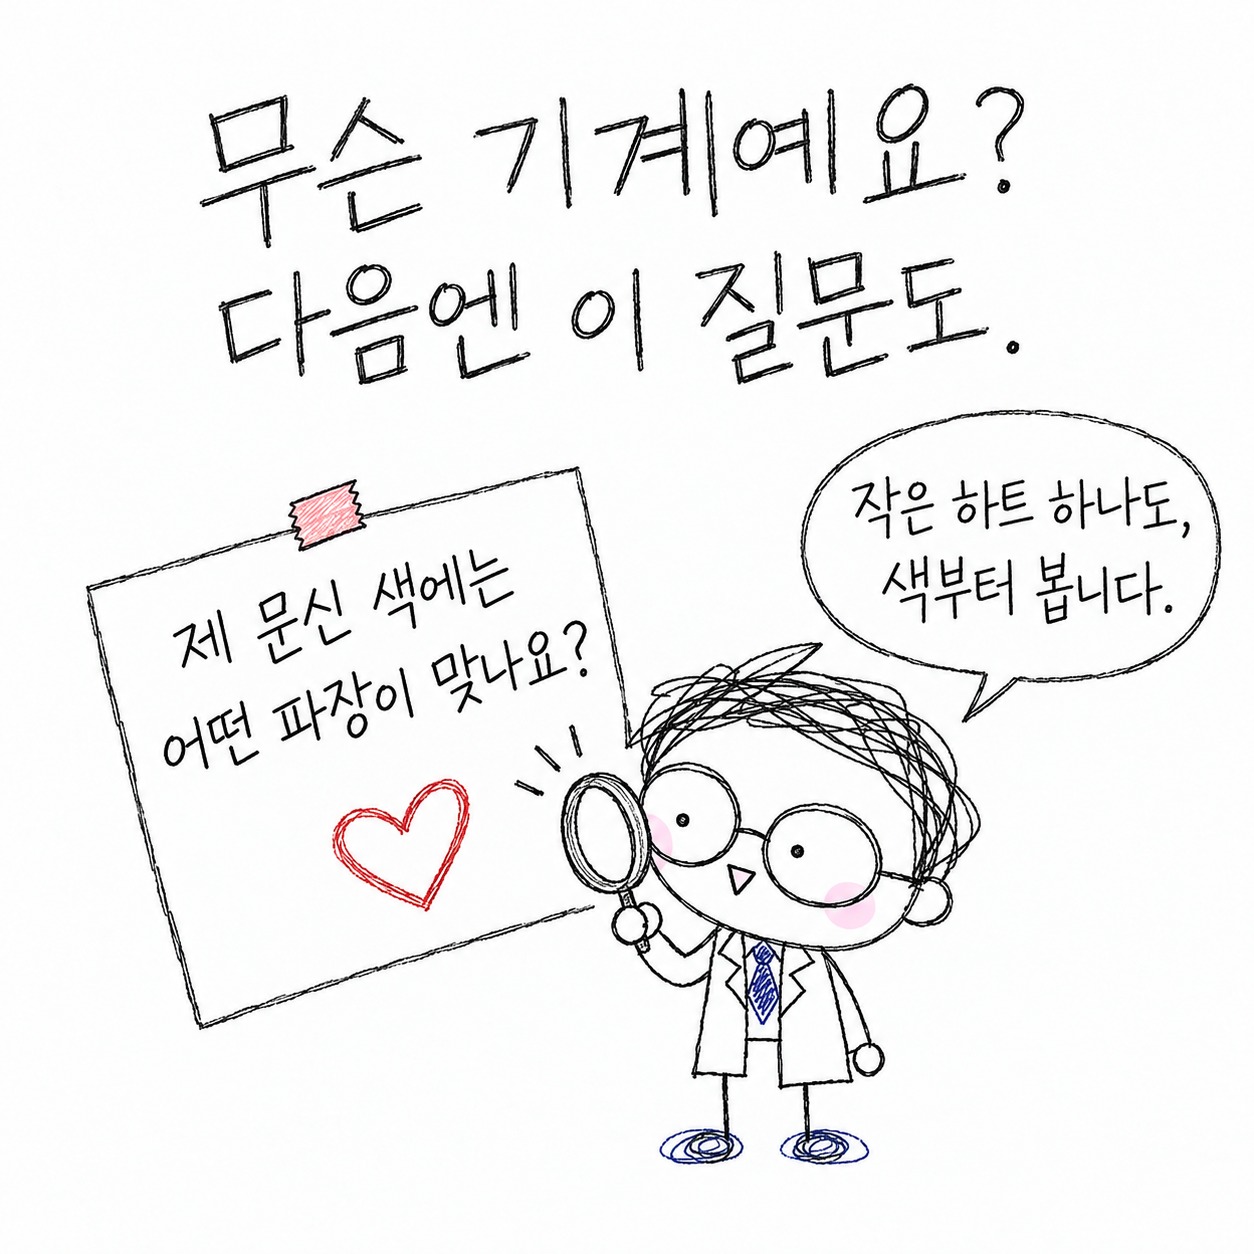 무슨 기계예요?
다음엔 이 질문도.
제 문신 색에는
어떤 파장이 맞나요?
작은 하트 하나도,
색부터 봅니다.